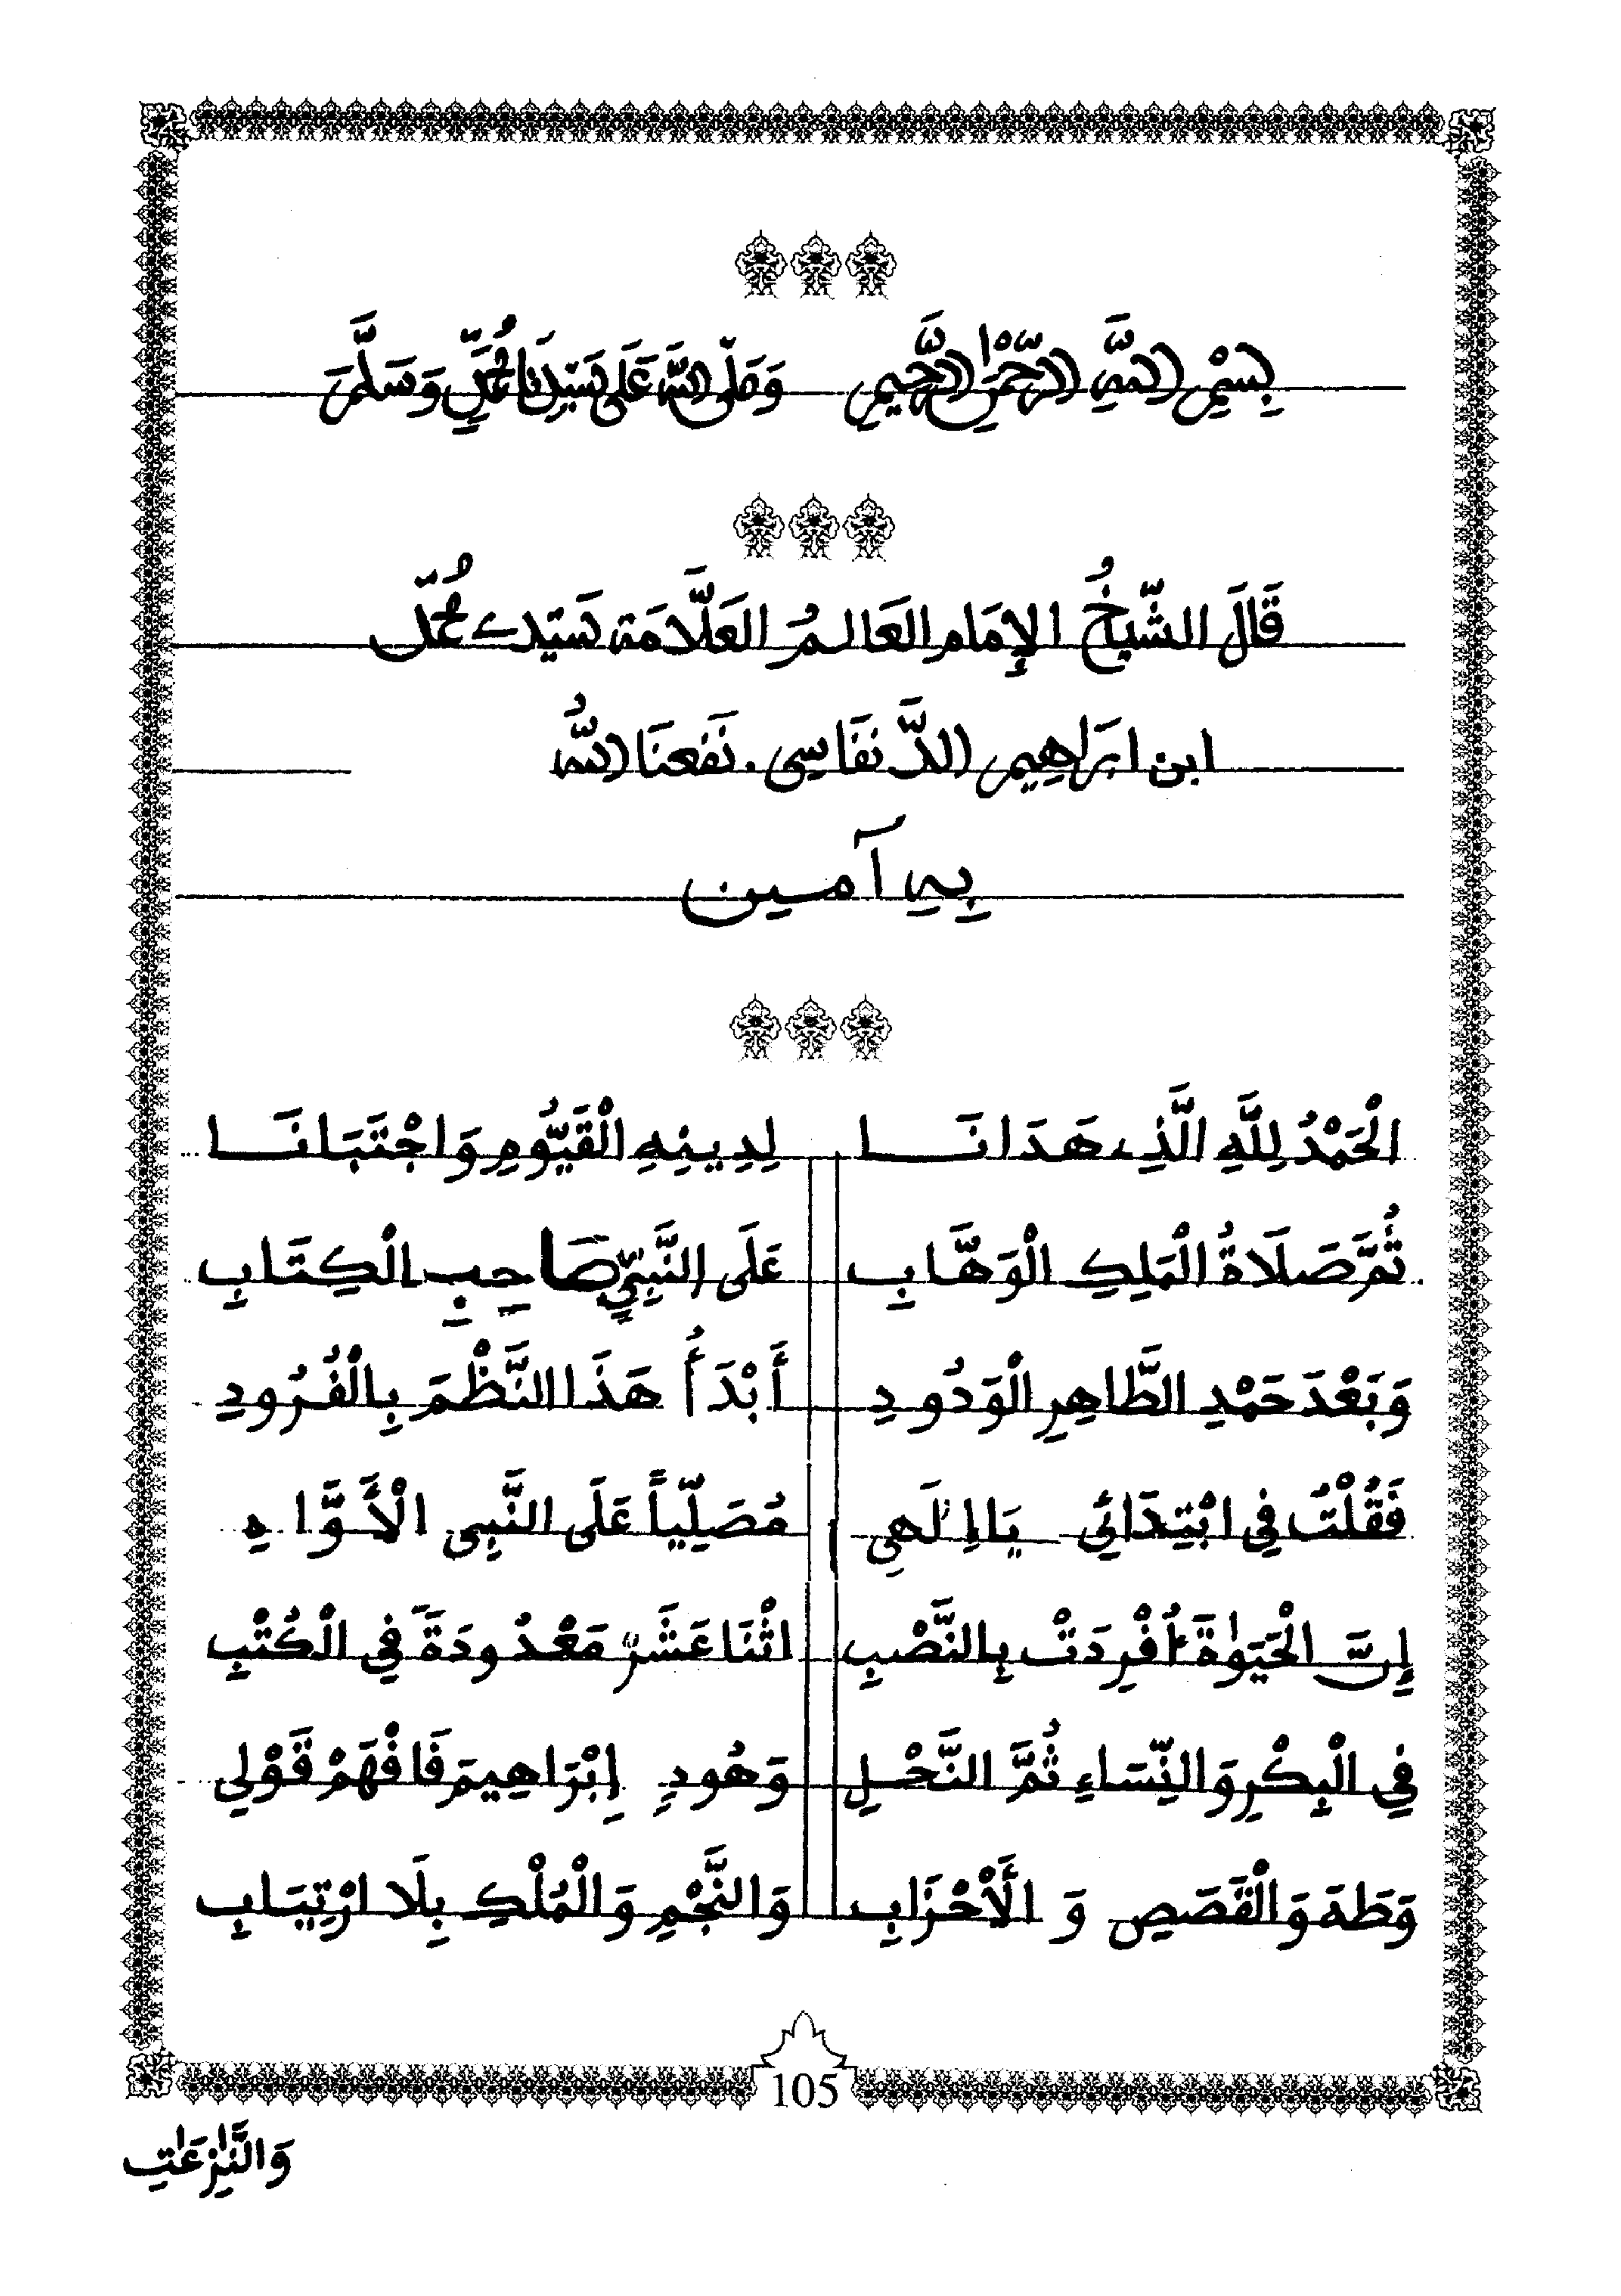 بِسْمِ اللَّهِ الرَّحْمَنِ الرَّحِيمِ وَصَلَّى اللَّهُ عَلَى سَيِّدِنَا مُحَمَّدٍ وَسَلَّمَ
قَالَ الشَّيْخُ الإِمَام العَالِمُ العَلَّامَة سَيِّدي مُحَمَّد
ابن ابرَاهِيم الدَّنفَاسِي. نَفَعنَا اللَّهُ
بِهِ آمين
الْحَمْدُ لِلَّهِ الَّذِي هَدَانَا لِدِينِهِ الْقَيُّومِ وَاجْتَبَانَا
ثُمَّ صَلَاةُ الْمَلِكِ الْوَهَّابِ عَلَى النَّبِيِّ صَاحِبِ الْكِتَابِ
وَبَعْدَ حَمْدِ الطَّاهِرِ الْوَدُودِ أَبْدَأُ هَذَا النَّظْمَ بِالْفُرُودِ
فَقُلْتُ فِي ابْتِدَائِي يَا إِلَهِي مُصَلِّياً عَلَى النَّبِي الْأَوَّاهِ
إِنَّ الْحَيَوٰةَ أُفْرِدَتْ بِالنَّصْبِ اثْنَا عَشَرَ مَعْدُودَةً فِي الْكُتْبِ
فِي الْبِكْرِ وَالنِّسَاءِ ثُمَّ النَّحْلِ وَهُودِ إِبْرَاهِيمَ فَافْهَمْ قَوْلِي
وَطَهَ وَالْقَصَصِ وَ الْأَحْزَابِ وَالنَّجْمِ وَالْمُلْكِ بِلَا ارْتِيَابِ
105
وَالنَّٰزِعَٰتِ